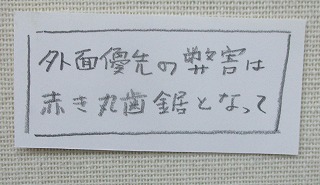 外面優先の弊害は
赤き丸歯鋸となって